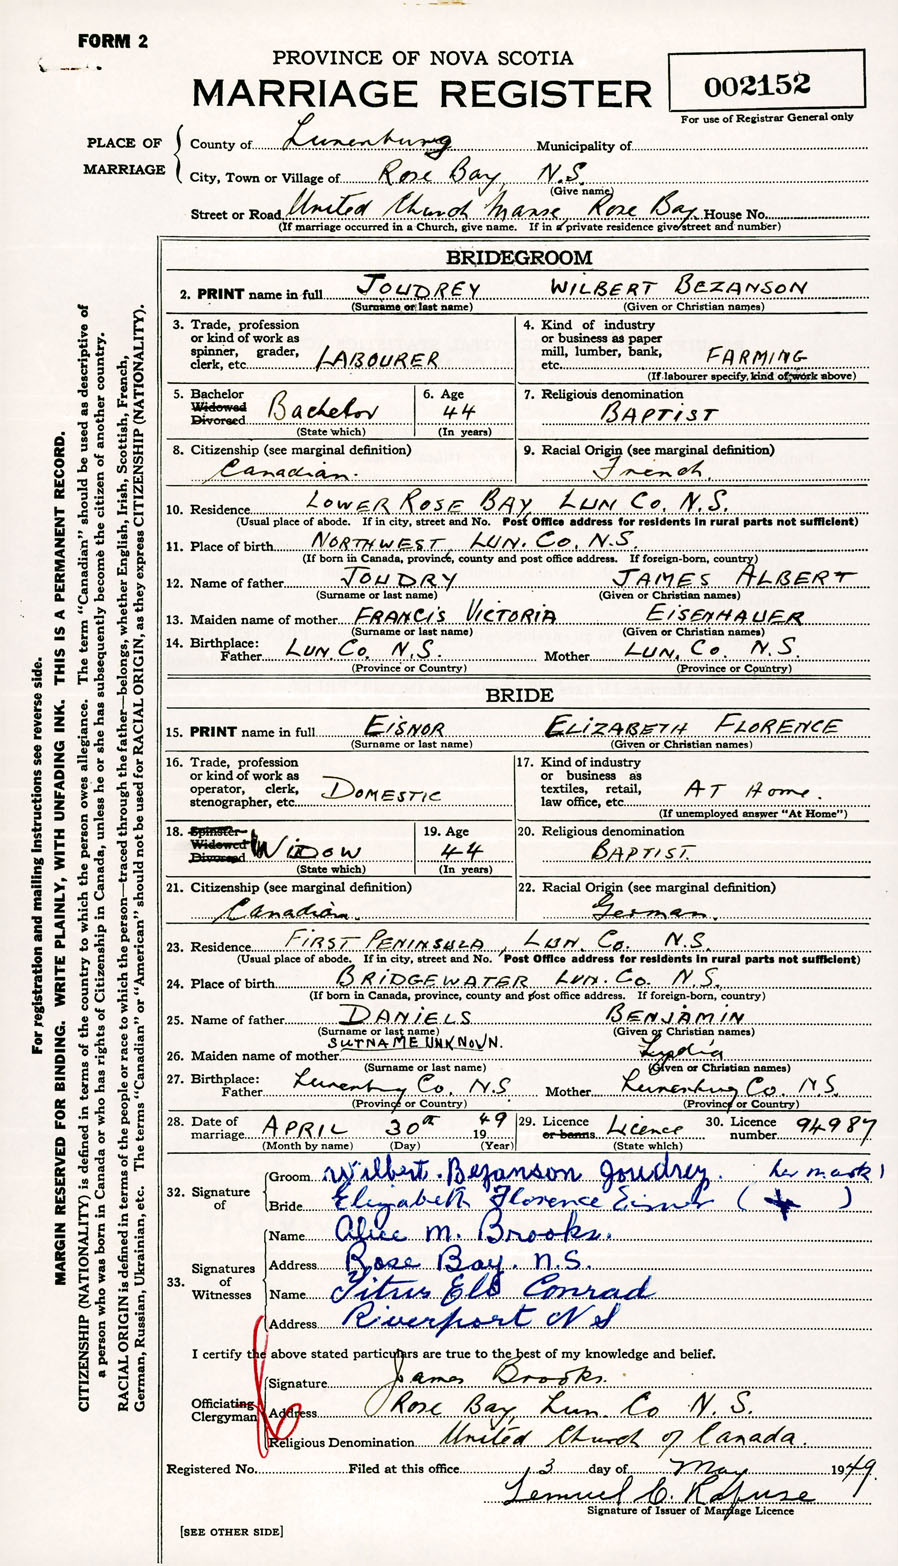 FORM 2
PROVINCE OF NOVA SCOTIA
MARRIAGE REGISTER
002152
For use of Registrar General only
PLACE OF MARRIAGE
County of Lunenburg Municipality of
City, Town or Village of Rose Bay, N.S.
(Give name)
Street or Road United Church Manse, Rose Bay House No.
(If marriage occurred in a Church, give name. If in a private residence give street and number)
BRIDEGROOM
2. PRINT name in full JOUDREY WILBERT BEZANSON
(Surname or last name) (Given or Christian names)
3. Trade, profession or kind of work as spinner, grader, clerk, etc. LABOURER
4. Kind of industry or business as paper mill, lumber, bank, etc. FARMING
(If labourer specify, kind of work above)
5. Bachelor Widowed Divorced Bachelor
(State which)
6. Age 44
(In years)
7. Religious denomination BAPTIST
8. Citizenship (see marginal definition) Canadian.
9. Racial Origin (see marginal definition) French.
10. Residence LOWER ROSE BAY, LUN CO. N.S.
(Usual place of abode. If in city, street and No. Post Office address for residents in rural parts not sufficient)
11. Place of birth NORTHWEST, LUN. CO. N.S.
(If born in Canada, province, county and post office address. If foreign-born, country)
12. Name of father JOUDRY JAMES ALBERT
(Surname or last name) (Given or Christian names)
13. Maiden name of mother FRANCIS VICTORIA EISENHAUER
(Surname or last name) (Given or Christian names)
14. Birthplace: Father LUN. CO. N.S. Mother LUN. CO. N.S.
(Province or Country) (Province or Country)
BRIDE
15. PRINT name in full EISNOR ELIZABETH FLORENCE
(Surname or last name) (Given or Christian names)
16. Trade, profession or kind of work as operator, clerk, stenographer, etc. DOMESTIC
17. Kind of industry or business as textiles, retail, law office, etc. AT Home.
(If unemployed answer "At Home")
18. Spinster Widowed Divorced WIDOW
(State which)
19. Age 44
(In years)
20. Religious denomination BAPTIST.
21. Citizenship (see marginal definition) Canadian.
22. Racial Origin (see marginal definition) German.
23. Residence FIRST PENINSULA, LUN. CO. N.S.
(Usual place of abode. If in city, street and No. Post Office address for residents in rural parts not sufficient)
24. Place of birth BRIDGEWATER LUN. CO. N.S.
(If born in Canada, province, county and post office address. If foreign-born, country)
25. Name of father DANIELS BENJAMIN
(Surname or last name) (Given or Christian names)
SURNAME UNKNOWN.
26. Maiden name of mother Lydia
(Surname or last name) (Given or Christian names)
27. Birthplace: Father Lunenburg Co. N.S Mother Lunenburg Co. N.S.
(Province or Country) (Province or Country)
28. Date of marriage APRIL 30th 1949
(Month by name) (Day) (Year)
29. Licence or banns Licence
(State which)
30. Licence number 94987
32. Signature of
Groom Wilbert Bezanson Joudrey. her mark
Bride Elizabeth Florence Eisnor ( + )
33. Signatures of Witnesses
Name Alice M. Brooks.
Address Rose Bay. N.S.
Name Titus Conrad
Address Riverport N S
I certify the above stated particulars are true to the best of my knowledge and belief.
Officiating Clergyman
Signature James Brooks.
Address Rose Bay, Lun. Co N.S.
Religious Denomination United Church of Canada.
Registered No. Filed at this office 3 day of May 1949.
Lemuel C. Rafuse
Signature of Issuer of Marriage Licence
[SEE OTHER SIDE]
For registration and mailing instructions see reverse side.
MARGIN RESERVED FOR BINDING. WRITE PLAINLY, WITH UNFADING INK. THIS IS A PERMANENT RECORD.
CITIZENSHIP (NATIONALITY) is defined in terms of the country to which the person owes allegiance. The term "Canadian" should be used as descriptive of
a person who was born in Canada or who has rights of Citizenship in Canada, unless he or she has subsequently become the citizen of another country.
RACIAL ORIGIN is defined in terms of the people or race to which the person—traced through the father—belongs, whether English, Irish, Scottish, French,
German, Russian, Ukrainian, etc. The terms "Canadian" or "American" should not be used for RACIAL ORIGIN, as they express CITIZENSHIP (NATIONALITY).